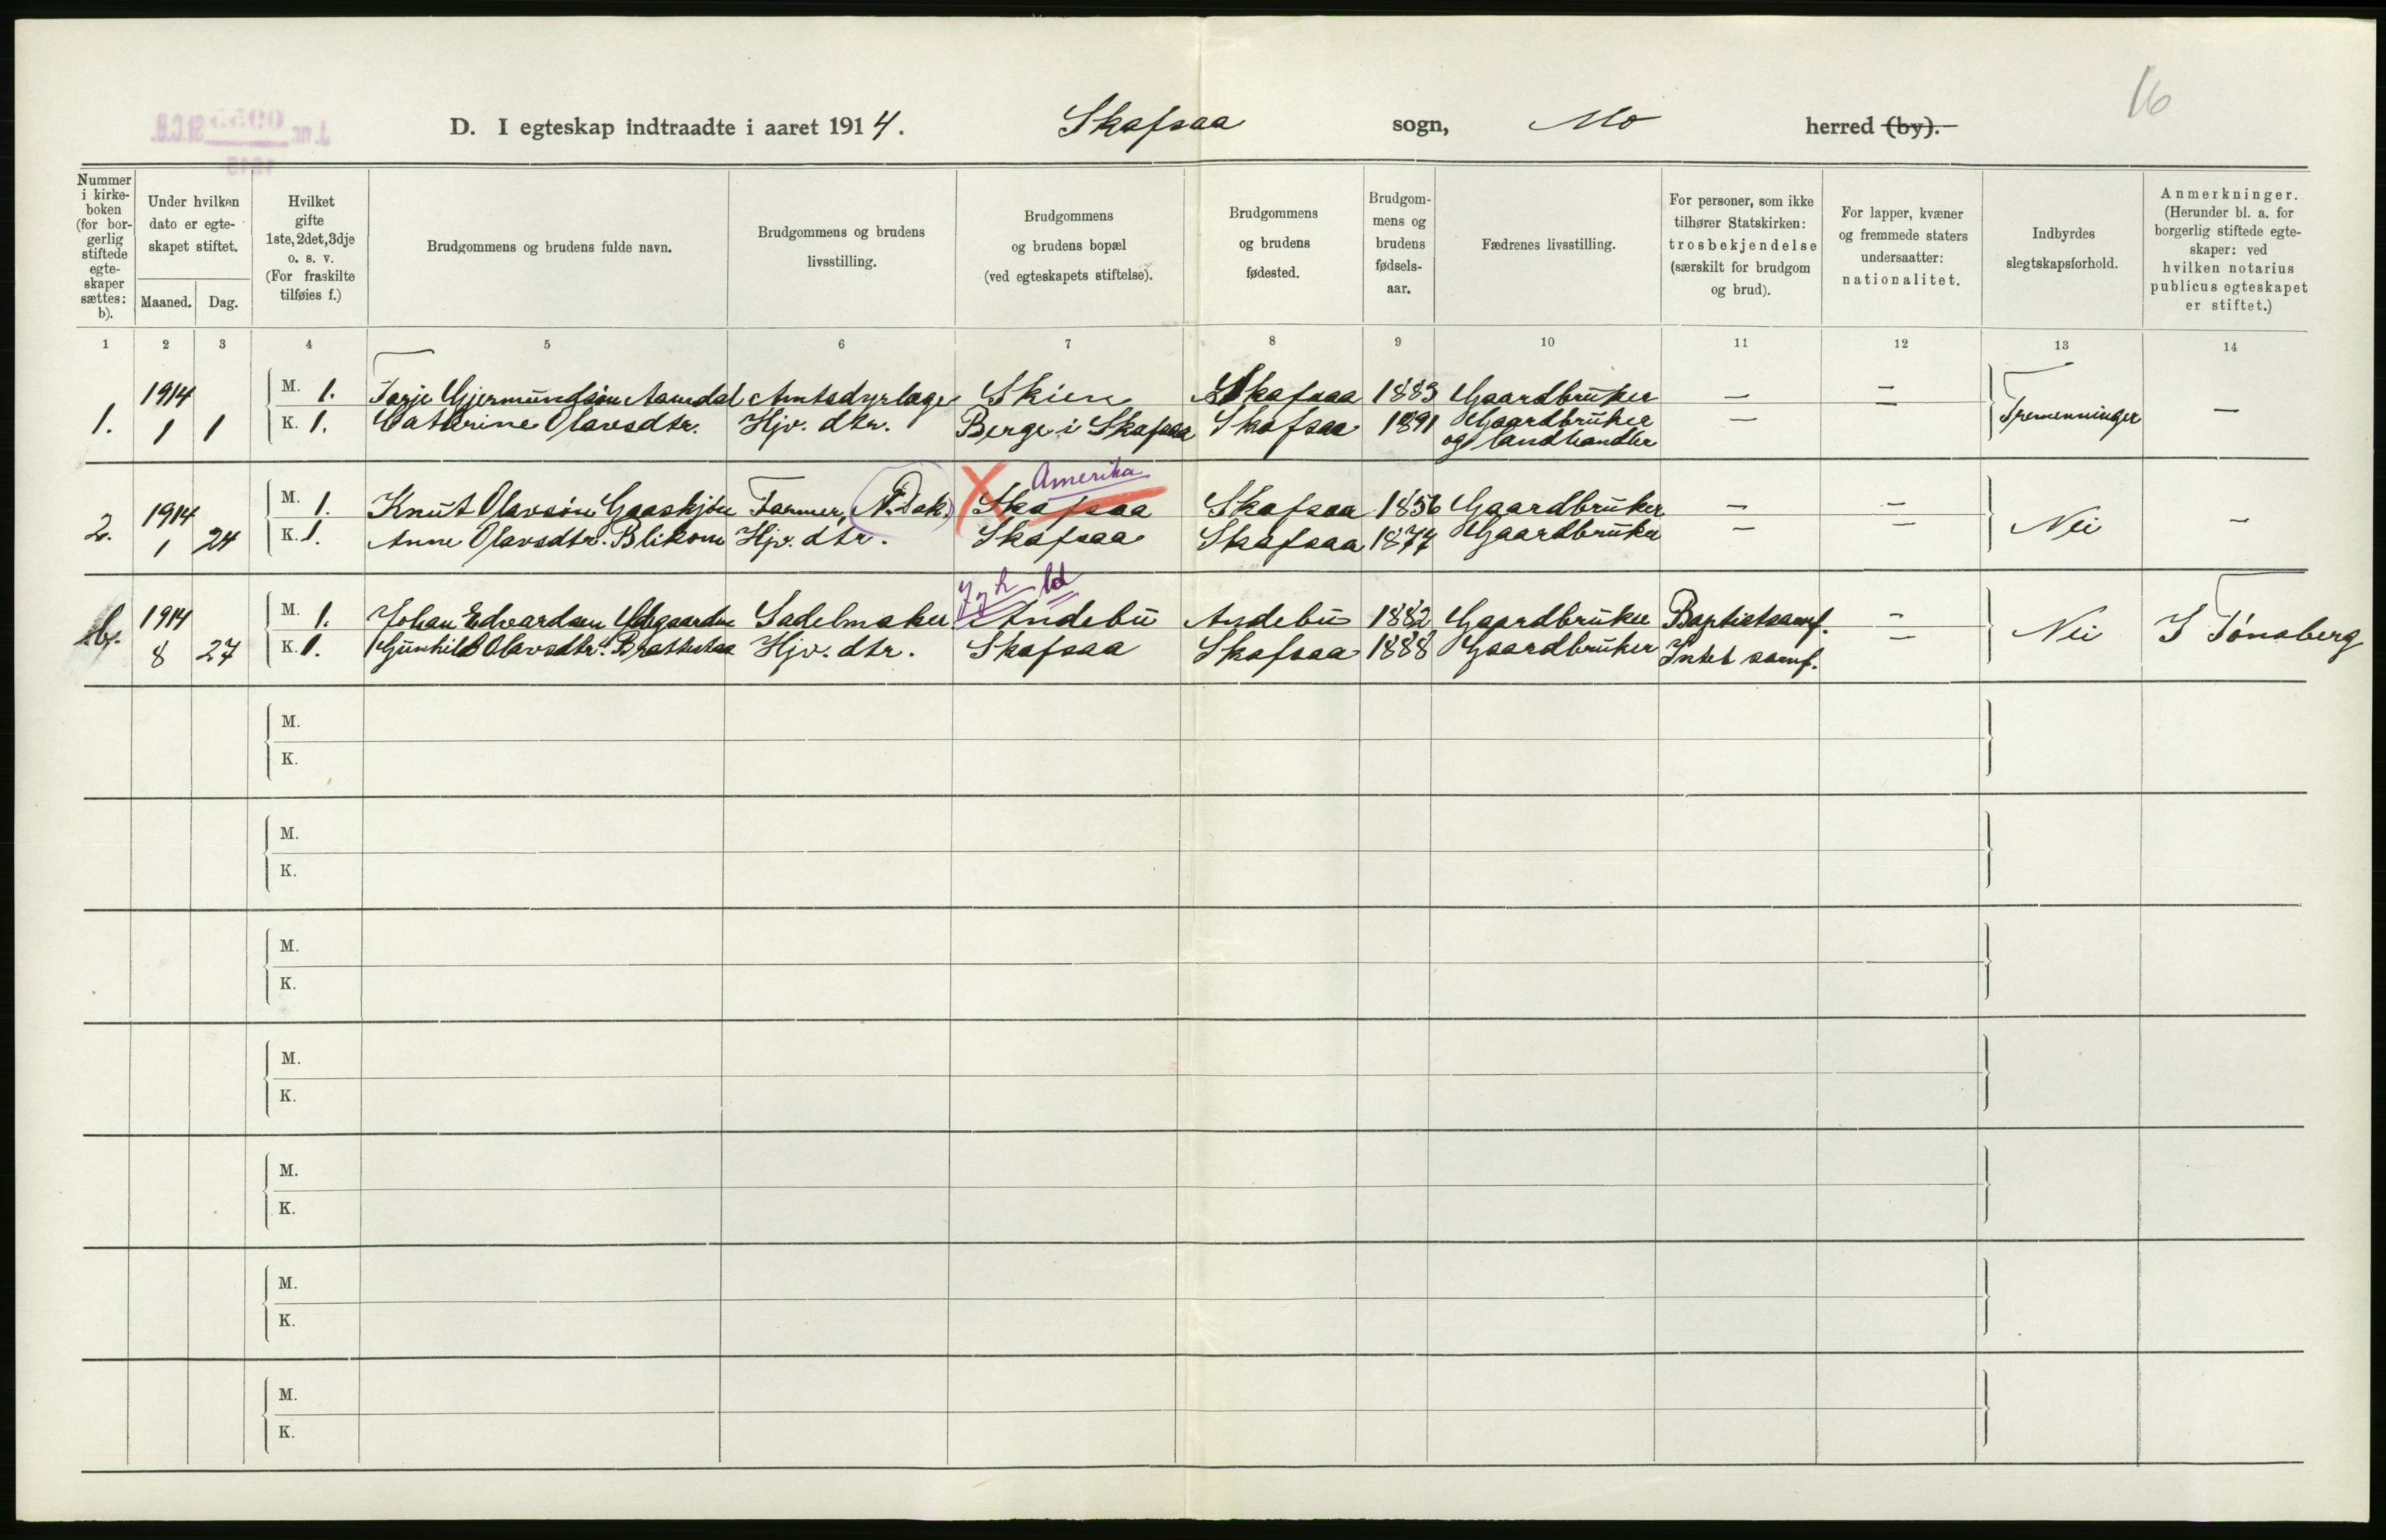 16
D. I egteskap indtraadte i aaret 1914. Skafsaa sogn, Mo herred (by).
Nummer i kirkeboken (for borgerlig stiftede egteskaper sættes: b).
Under hvilken dato er egteskapet stiftet.
Maaned. Dag.
Hvilket gifte 1ste, 2det, 3dje o. s. v. (For fraskilte tilføies f.)
Brudgommens og brudens fulde navn.
Brudgommens og brudens livsstilling.
Brudgommens og brudens bopæl (ved egteskapets stiftelse).
Brudgommens og brudens fødested.
Brudgommens og brudens fødselsaar.
Fædrenes livsstilling.
For personer, som ikke tilhører Statskirken: trosbekjendelse (særskilt for brudgom og brud).
For lapper, kvæner og fremmede staters undersaatter: nationalitet.
Indbyrdes slegtskapsforhold.
Anmerkninger. (Herunder bl. a. for borgerlig stiftede egteskaper: ved hvilken notarius publicus egteskapet er stiftet.)
1 2 3 4 5 6 7 8 9 10 11 12 13 14
1914 M. 1. Tarje Gjermundsøn Aamdal Amtsdyrlæge Skien Skafsaa 1883 Gaardbruker — —
1. 1 1 K. 1. Cathrine Olavsdtr. Hjv. dtr. Berge i Skafsaa Skafsaa 1891 Gaardbruker — — Tremenninger —
og landhandler
Amerika
1914 M. 1. Knut Olavsøn Gaaskjøn Farmer, (N. Dak.) Skafsaa Skafsaa 1856 Gaardbruker — —
2. 1 24 K. 1. Anne Olavsdtr. Blikom Hjv. dtr. Skafsaa Skafsaa 1877 Gaardbruker — — Nei —
1914 M. 1. Johan Edvardsen Sadelmaker Andebu Andebu 1882 Gaardbruker Baptistsamf. —
b. 8 27 K. 1. Gunhild Olavsdtr. Brattestaa Hjv. dtr. Skafsaa Skafsaa 1888 Gaardbruker Intet samf. — Nei I Tønsberg
M.
K.
M.
K.
M.
K.
M.
K.
M.
K.
M.
K.
M.
K.